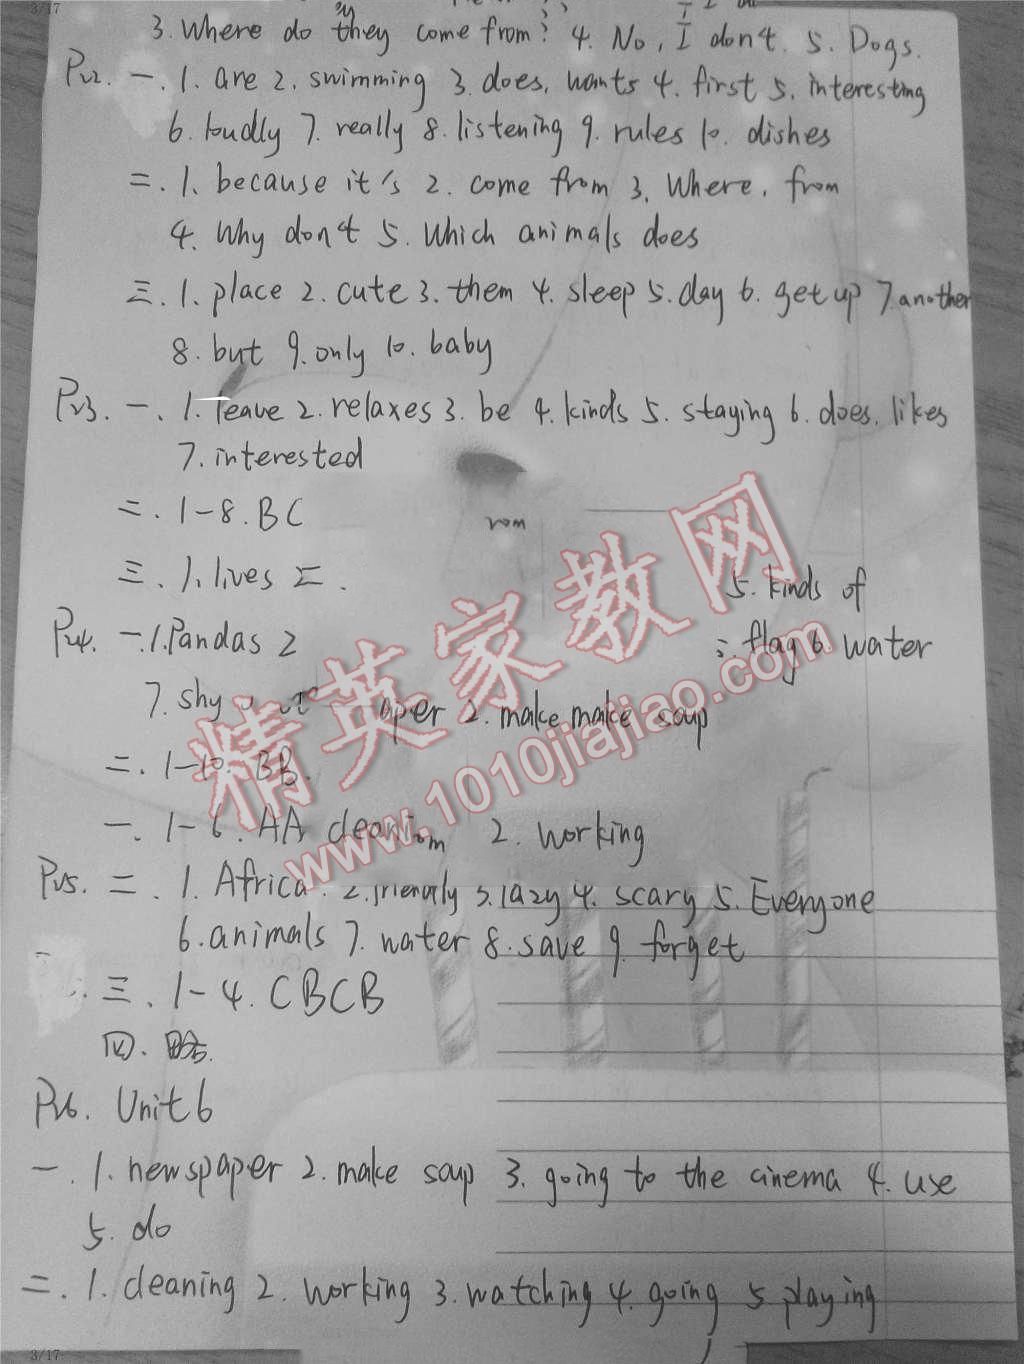 3/17
3. Where do they come from? 4. No, I don't. 5. Dogs.
P22. 一. 1. are 2. swimming 3. does, wants 4. first 5. interesting
6. loudly 7. really 8. listening 9. rules 10. dishes
二. 1. because it's 2. come from 3. Where, from
4. Why don't 5. Which animals does
三. 1. place 2. cute 3. them 4. sleep 5. day 6. get up 7. another
8. but 9. only 10. baby
P23. 一. 1. leave 2. relaxes 3. be 4. kinds 5. staying 6. does, likes
7. interested
二. 1-8. BC
rom
三. 1. lives 二.
5. kinds of
P24. 一. 1. Pandas 2
flag 6 water
7. shy
aper 2. make make soup
二. 1-10. BB.
一. 1-6. AA 2. working
P25. 二. 1. Africa 2. friendly 3. lazy 4. scary 5. Everyone
6. animals 7. water 8. save 9. forget
三. 1-4. CBCB
四. 略.
P26. Unit 6
一. 1. newspaper 2. make soup 3. going to the cinema 4. use
5. do
二. 1. cleaning 2. working 3. watching 4. going 5. playing
精英家教网
www.1010jiajiao.com
3/17